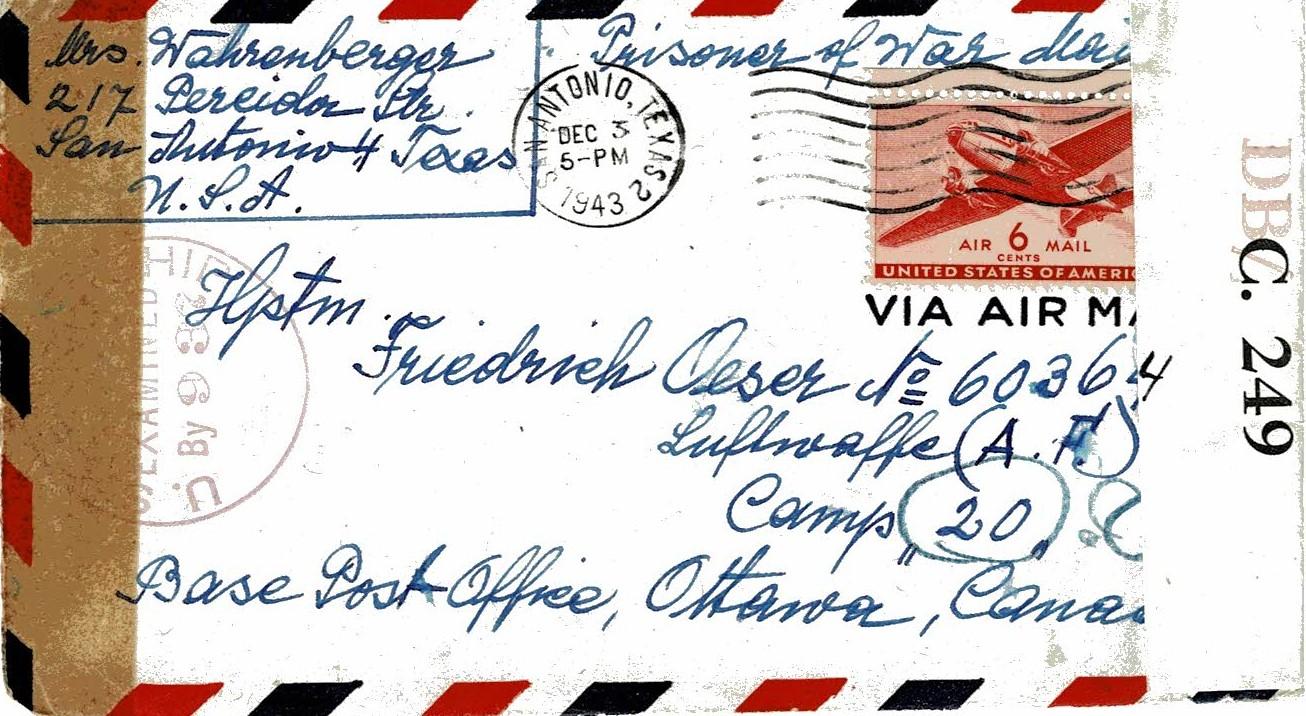 Mrs. Wahrenberger
217 Pereida Str.
San Antonio 4 Texas
U.S.A.
Prisoner of War Mai
SAN ANTONIO, TEXAS 2
DEC 3
5-PM
1943
AIR 6 MAIL
CENTS
UNITED STATES OF AMERIC
VIA AIR MA
Hptm.
Friedrich Oeser No 60364
Luftwaffe (A.F.)
Camp "20"
Base Post-Office, Ottawa, Canad
EXAMINED
By 983
DB/
C. 249